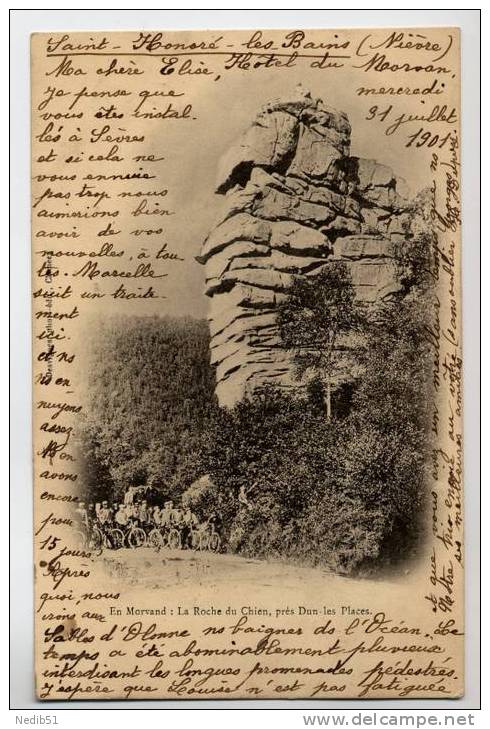 Saint-Honoré-les Bains (Nièvre)
Ma chère Elise, Hotel du Morvan,
mercredi
31 juillet
1901
Je pense que
vous êtes instal-
lés à Sèvres
et si cela ne
vous ennuie
pas trop nous
aimerions bien
avoir de vos
nouvelles, à tou
tes. Marcelle
suit un traite-
ment
ici.
et ns
ns en
nuyons
assez.
Ns en
avons
encore
pr
15 jours
Après
quoi, nous
irons aux
Sables d'Olonne ns baigner ds l'Océan. Le
temps a été abominablement pluvieux
interdisant les longues promenades pédestres.
J'espère que Louise n'est pas fatiguée
et que vous
En Morvand : La Roche du Chien, près Dun-les Places.
Nedib51
http://www.delcampe.net